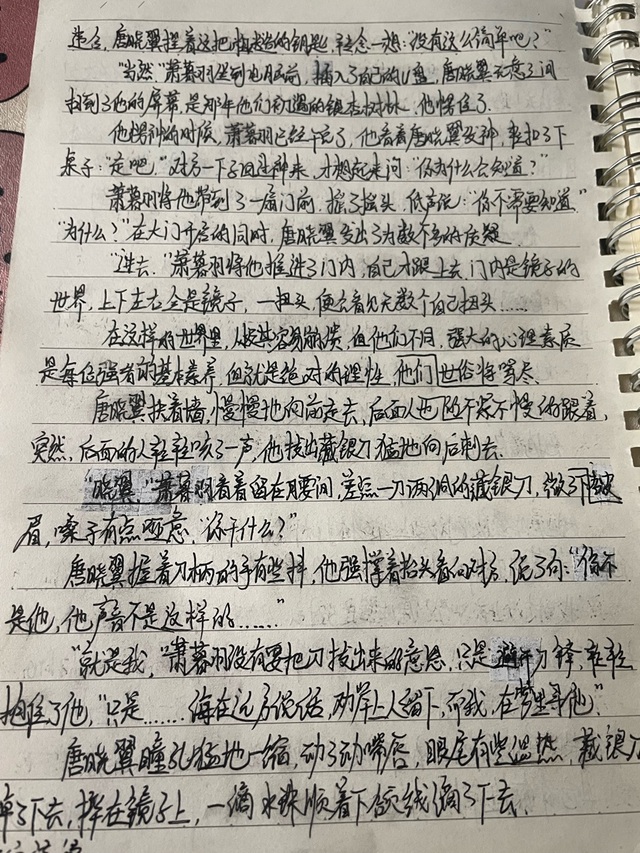 唐晓翼捏着这把相当的钥匙，转念一想："没有这么简单吧？"
"当然"萧暮羽坐到电脑前，插入了自己的U盘，唐晓翼无意之间
扫到了他的屏幕，是那年他们初遇的银杏树林，他愣住了
他愣神的时候，萧暮羽已经干完了，他看着唐晓翼发神，轻扣了下
桌子："走吧。"对方一下子回过神来，才想起来问："你为什么会知道？"
萧暮羽将他带到了一扇门前，摇了摇头，低声说："你不需要知道"
"为什么？"在大门开启的同时，唐晓翼发出了为数不多的质疑
"进去。"萧暮羽将他推进了门内，自己才跟上去，门内是镜子的
世界，上下左右全是镜子，一扭头，便会看见无数个自己扭头……
在这样的世界里，人极其容易崩溃，但他们不同，强大的心理素质
是每位强者的基本素养，但就是绝对的理性，他们世俗将等尽
唐晓翼扶着墙，慢慢地向前走去，后面人也不紧不慢的跟着，
突然，后面的人轻轻咳了一声，他拔出藏银刀猛地向后刺去.
"晓翼，"萧暮羽看着留在月要间，差点一刀两洞的藏银刀，微了下皱
眉，嗓子有点哑意，"你干什么？"
唐晓翼握着刀柄的手有些抖，他强撑着抬头看向对方，说了句："你不
是他，他声音不是这样的……"
"就是我，"萧暮羽没有要把刀拔出来的意思，只是避开刀锋，轻轻
抱住了他，"只是……海在远方说话，劝岸上人留下，而我，在梦里寻他"
唐晓翼瞳孔猛地一缩，动了动嘴唇，眼尾有些温热，藏银刀
掉了下去，摔在镜子上，一滴水珠顺着下颌线滴了下去.